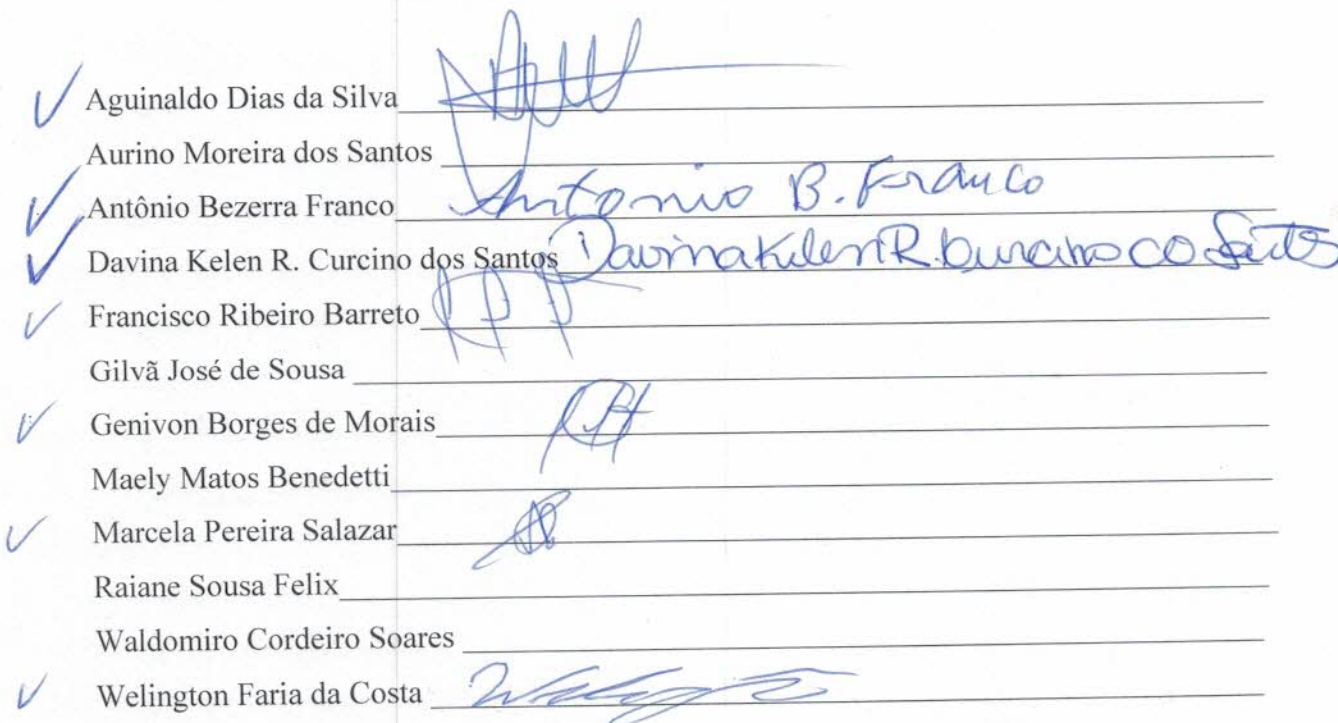 Aguinaldo Dias da Silva
Aurino Moreira dos Santos
Antônio Bezerra Franco Antonio B. Franco
Davina Kelen R. Curcino dos Santos Davina Kelen R. Curcino
Francisco Ribeiro Barreto
Gilvã José de Sousa
Genivon Borges de Morais
Maely Matos Benedetti
Marcela Pereira Salazar
Raiane Sousa Felix
Waldomiro Cordeiro Soares
Welington Faria da Costa